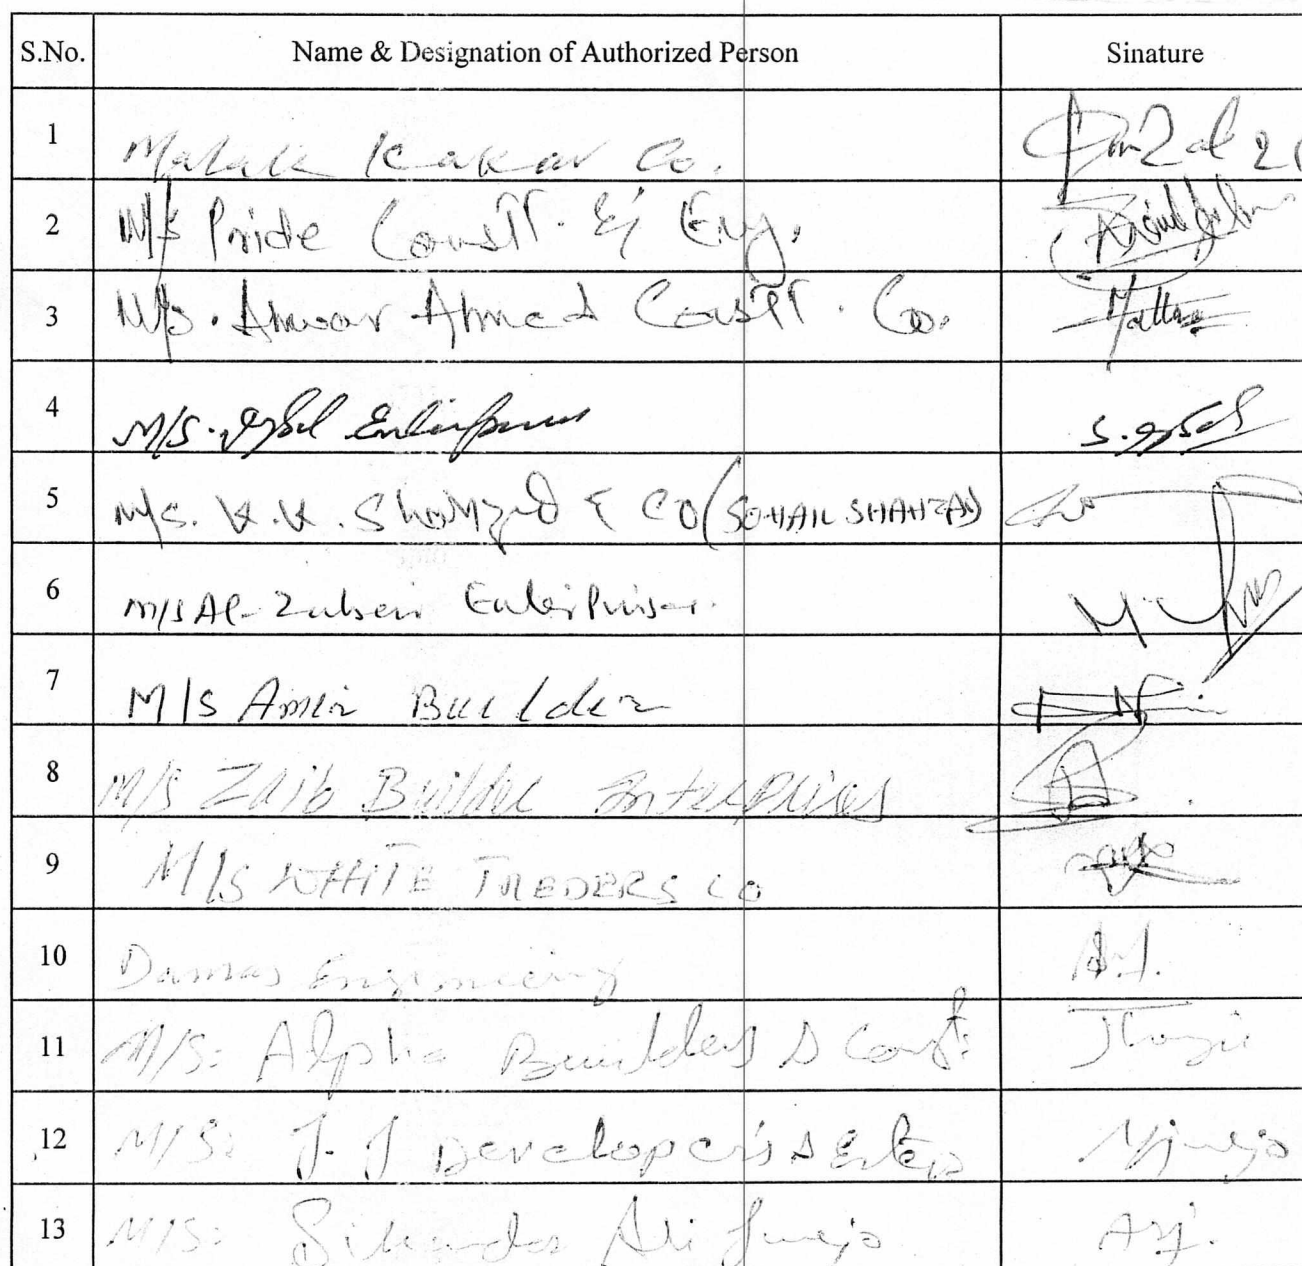 S.No. Name & Designation of Authorized Person Sinature
1 Malak Kakar Co.
2 M/S Pride Constt. & Eng.
3 M/S. Anwar Ahmed Constt. Co.
4 M/S. Iqbal Enterprises S. Iqbal
5 M/S. K.K. Shahzad & CO (SOHAIL SHAHZAD)
6 M/S Al-Zubair Enterprises.
7 M/S Amir Builder
8 M/S Zaib Builder Enterprises
9 M/S WHITE TREDERS CO
10 Damas Engineering
11 M/S: Alpha Builders & Const:
12 M/S: J.J Developers & Enter
13 M/S: Sikandar Ali Junejo